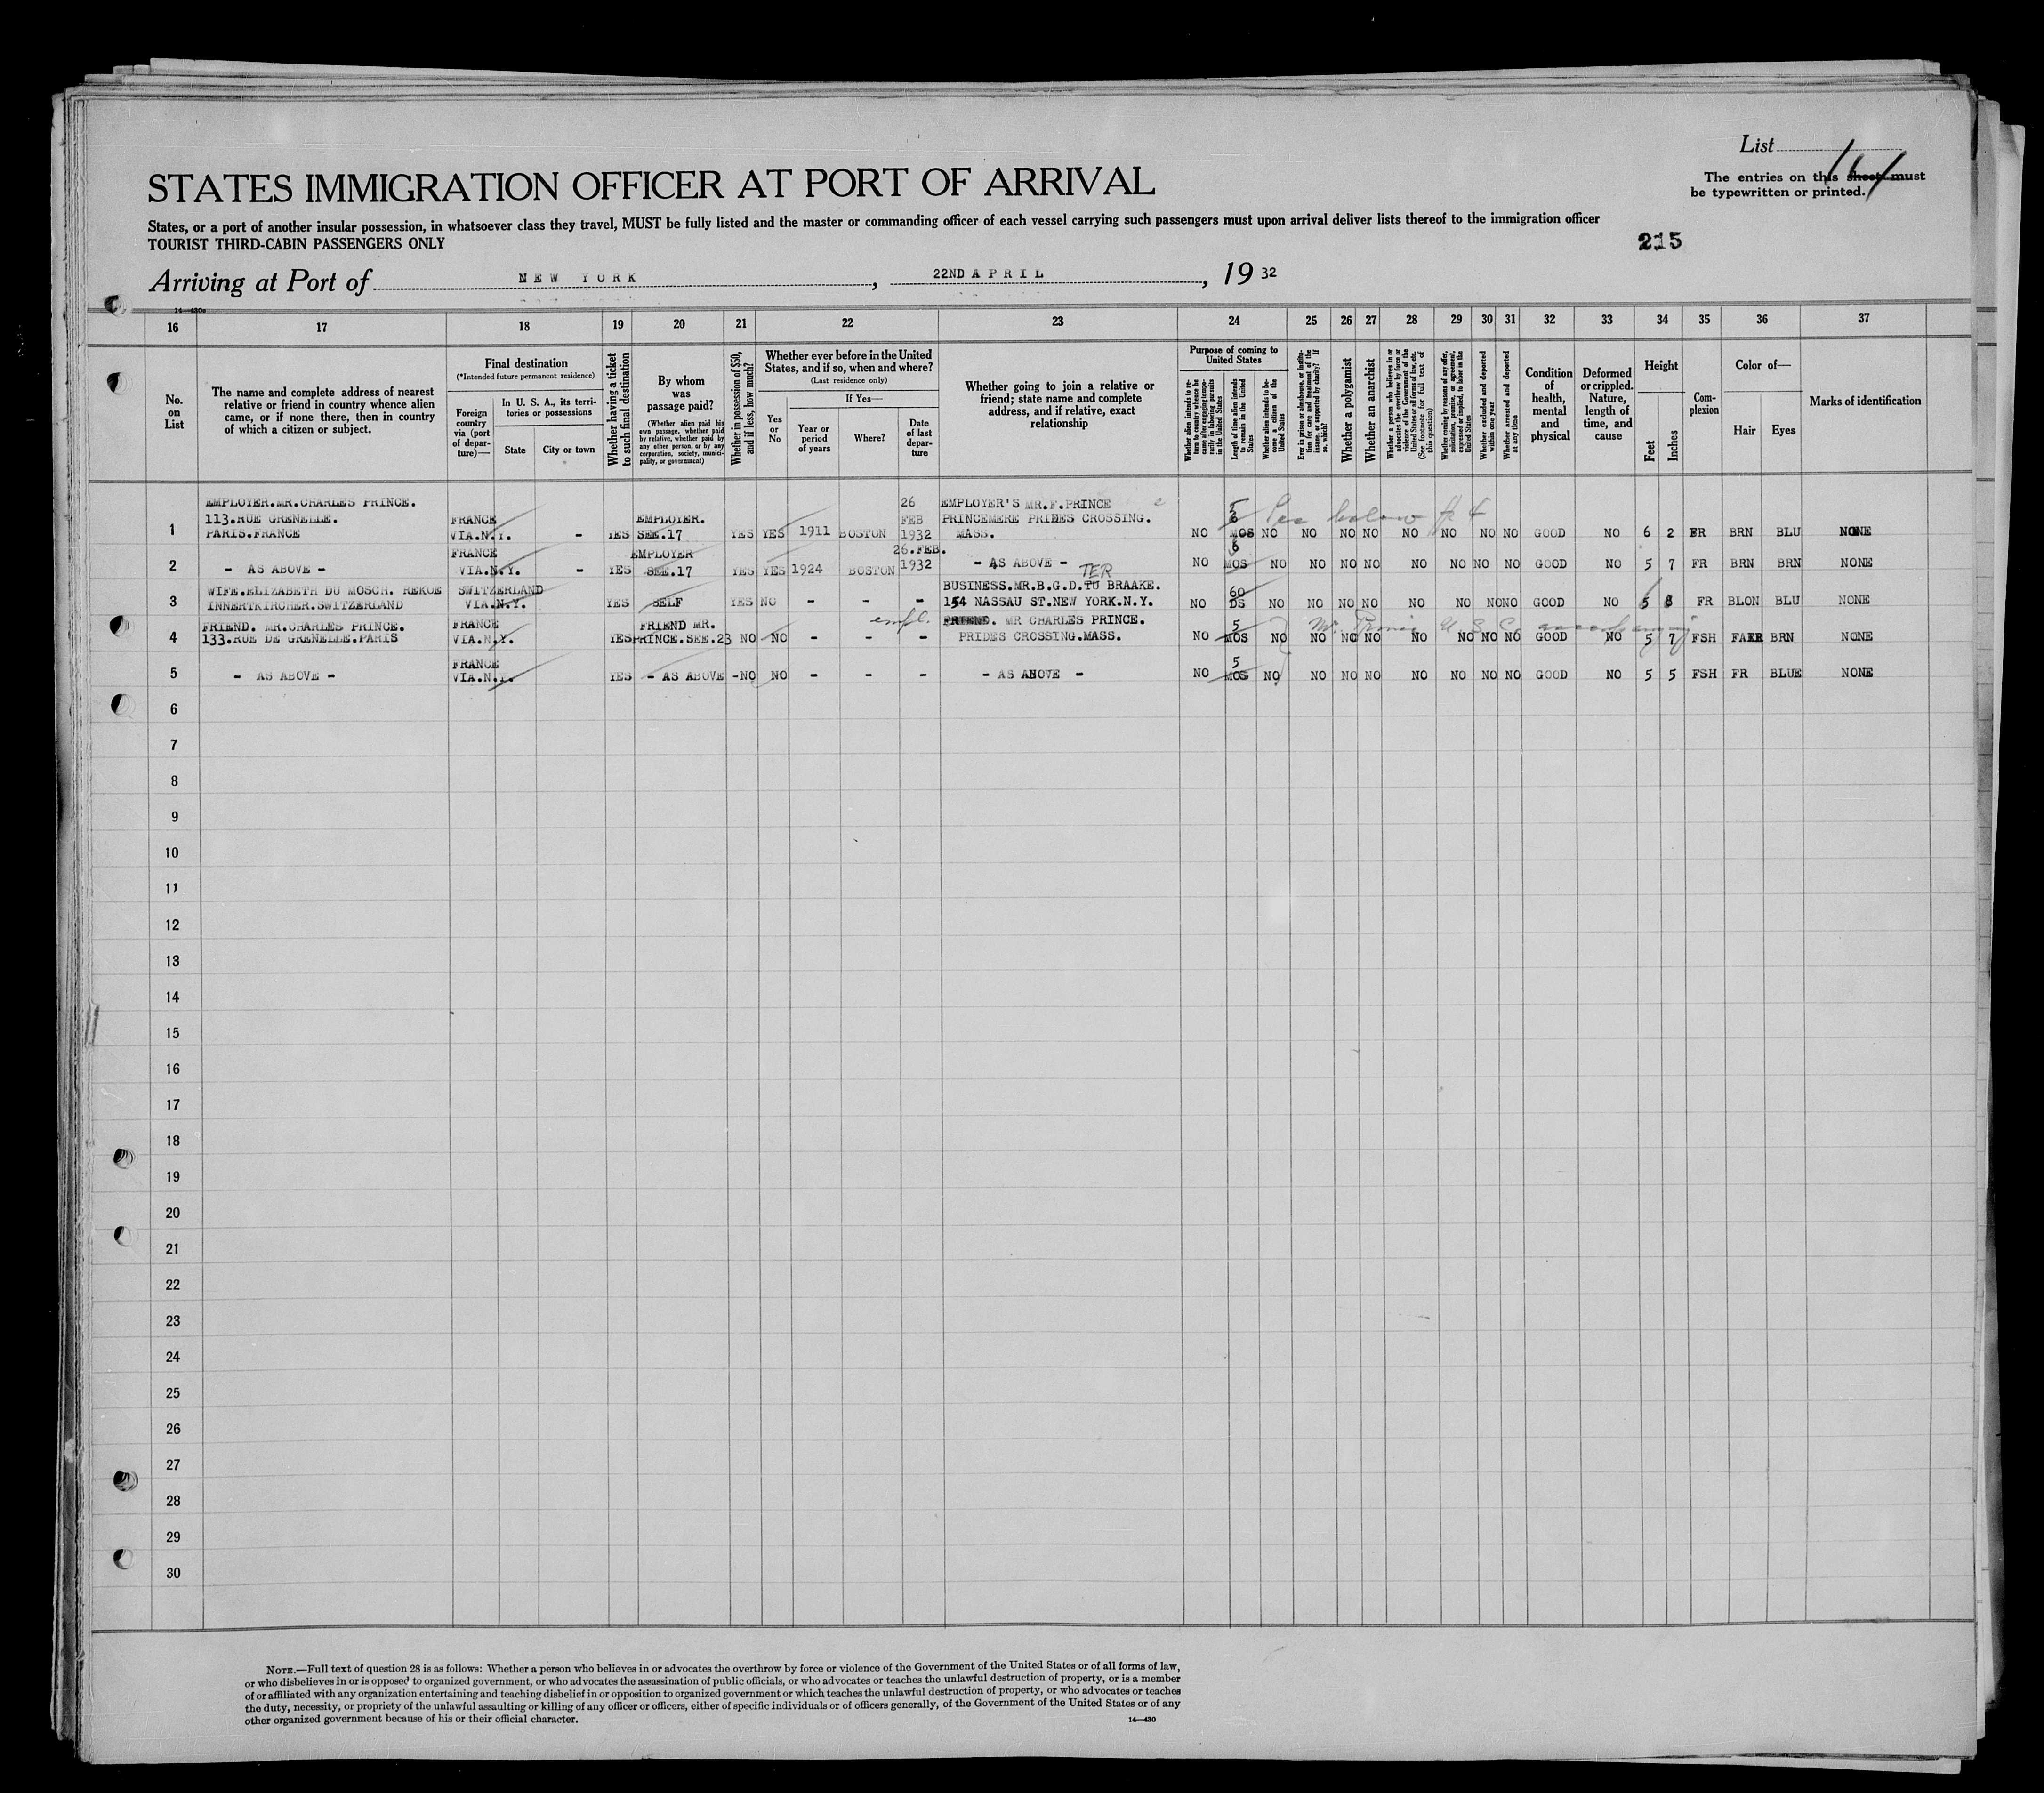 List
The entries on this sheet must
be typewritten or printed.
STATES IMMIGRATION OFFICER AT PORT OF ARRIVAL
States, or a port of another insular possession, in whatsoever class they travel, MUST be fully listed and the master or commanding officer of each vessel carrying such passengers must upon arrival deliver lists thereof to the immigration officer
TOURIST THIRD-CABIN PASSENGERS ONLY
215
Arriving at Port of NEW YORK, 22ND APRIL, 1932
16 17 18 19 20 21 22 23 24 25 26 27 28 29 30 31 32 33 34 35 36 37
No.
on
List
The name and complete address of nearest
relative or friend in country whence alien
came, or if none there, then in country
of which a citizen or subject.
Final destination
(*Intended future permanent residence)
Foreign
country
via (port
of depar-
ture)—
In U. S. A., its terri-
tories or possessions
State
City or town
Whether having a ticket
to such final destination
By whom
was
passage paid?
(Whether alien paid his
own passage, whether paid
by relative, whether paid by
any other person, or by any
corporation, society, munici-
pality, or government)
Whether in possession of $50,
and if less, how much?
Whether ever before in the United
States, and if so, when and where?
(Last residence only)
Yes
or
No
If Yes—
Year or
period
of years
Where?
Date
of last
depar-
ture
Whether going to join a relative or
friend; state name and complete
address, and if relative, exact
relationship
Purpose of coming to
United States
Whether alien intends to re-
turn to country whence he
came after engaging tempo-
rarily in laboring pursuits
in the United States
Length of time alien intends
to remain in the United
States
Whether alien intends to be-
come a citizen of the
United States
Ever in prison or almshouse, or institu-
tion for care and treatment of the
insane, or supported by charity? If
so, which?
Whether a polygamist
Whether an anarchist
Whether a person who believes in or
advocates the overthrow by force or
violence of the Government of the
United States or all forms of law, etc.
(See footnote for full text of
this question)
Whether coming by reason of any offer,
solicitation, promise, or agreement,
expressed or implied, to labor in the
United States
Whether excluded and deported
within one year
Whether arrested and deported
at any time
Condition
of
health,
mental
and
physical
Deformed
or crippled.
Nature,
length of
time, and
cause
Height
Feet
Inches
Com-
plexion
Color of—
Hair
Eyes
Marks of identification
EMPLOYER.MR.CHARLES PRINCE. 26 EMPLOYER'S MR.F.PRINCE 5 See below # 4
113.RUE GRENELLE. FRANCE EMPLOYER. FEB PRINCEMERE PRIDES CROSSING.
1 PARIS.FRANCE VIA.N.Y. - YES SEE.17 YES YES 1911 BOSTON 1932 MASS. NO MOS NO NO NO NO NO NO NO NO GOOD NO 6 2 FR BRN BLU NONE
FRANCE EMPLOYER 26.FEB. 6
2 - AS ABOVE - VIA.N.Y. - YES SEE.17 YES YES 1924 BOSTON 1932 - AS ABOVE - NO MOS NO NO NO NO NO NO NO NO GOOD NO 5 7 FR BRN BRN NONE
TER
WIFE.ELIZABETH DU MOSCH. REKOE SWITZERLAND BUSINESS.MR.B.G.D.TU BRAAKE. 60
3 INNERTKIRCHER.SWITZERLAND VIA.N.Y. YES SELF YES NO - - - 154 NASSAU ST.NEW YORK.N.Y. NO DS NO NO NO NO NO NO NO NO GOOD NO 5 8 FR BLON BLU NONE
FRIEND. MR.CHARLES PRINCE. FRANCE FRIEND MR. empl. FRIEND. MR CHARLES PRINCE. 5 Mr. Prince U S C accompanying
4 133.RUE DE GRENELLE.PARIS VIA.N.Y. YES PRINCE.SEE.23 NO NO - - - PRIDES CROSSING.MASS. NO MOS NO NO NO NO NO NO NO NO GOOD NO 5 7 FSH FAIR BRN NONE
FRANCE 5
5 - AS ABOVE - VIA.N.Y. YES - AS ABOVE - NO NO - - - - AS ABOVE - NO MOS NO NO NO NO NO NO NO NO GOOD NO 5 5 FSH FR BLUE NONE
6
7
8
9
10
11
12
13
14
15
16
17
18
19
20
21
22
23
24
25
26
27
28
29
30
NOTE.—Full text of question 28 is as follows: Whether a person who believes in or advocates the overthrow by force or violence of the Government of the United States or of all forms of law,
or who disbelieves in or is opposed to organized government, or who advocates the assassination of public officials, or who advocates or teaches the unlawful destruction of property, or is a member
of or affiliated with any organization entertaining and teaching disbelief in or opposition to organized government or which teaches the unlawful destruction of property, or who advocates or teaches
the duty, necessity, or propriety of the unlawful assaulting or killing of any officer or officers, either of specific individuals or of officers generally, of the Government of the United States or of any
other organized government because of his or their official character.
14—430